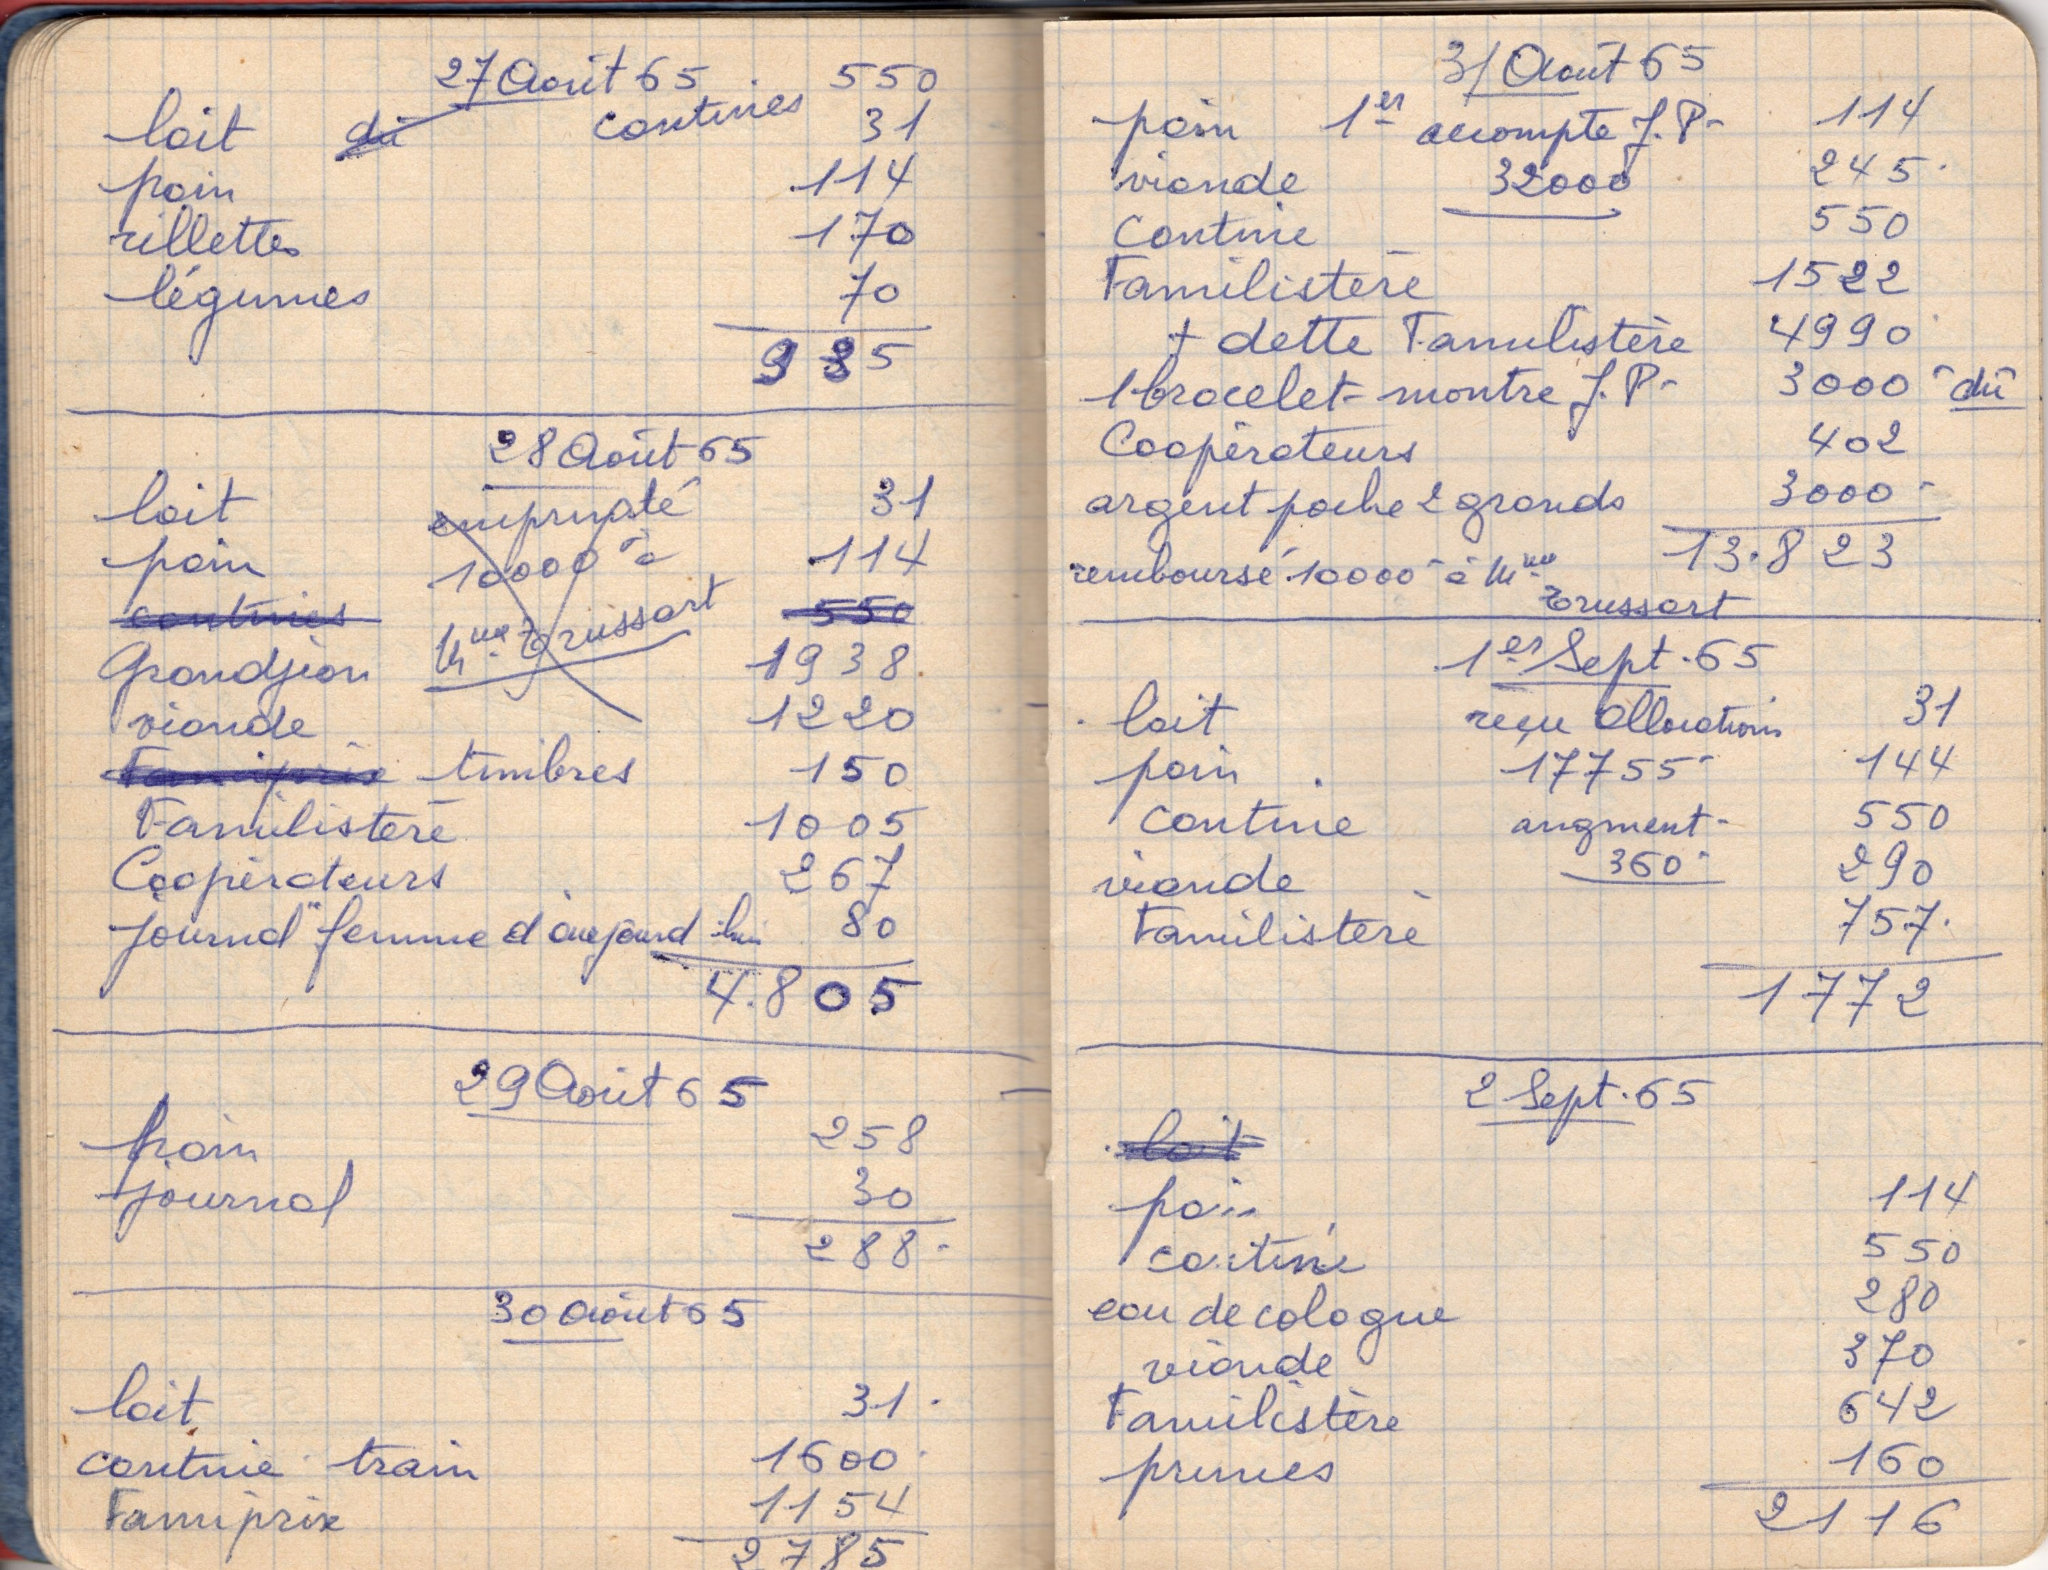 27 Août 65 550
lait dû cantines 31
pain 114
rillettes 170
légumes 70
935
28 Août 65
lait emprunté 31
pain 10000 à 114
cantines Mme Trussart 550
Grandjean 1938
viande 1220
Familiprix timbres 150
Familistère 1005
Coopérateurs 267
journal "femme d'aujourd'hui 80
4.805
29 Août 65
pain 258
journal 30
288
30 Août 65
lait 31
cantine train 1600
Famiprix 1154
2785
31 Août 65
pain 1er accompte J.P. 114
viande 32000 245
Cantine 550
Familistère 1522
+ dette Familistère 4990
1 bracelet-montre J.P. 3000 dû
Coopérateurs 402
argent poche 2 grands 3000
13.823
remboursé 10000 à Mme
Trussart
1er Sept. 65
lait reçu Allocations 31
pain 17755 144
cantine augment. 550
viande 360 290
Familistère 757
1772
2 Sept. 65
lait
pain 114
cantine 550
eau de cologne 280
viande 370
Familistère 642
prunes 160
2116